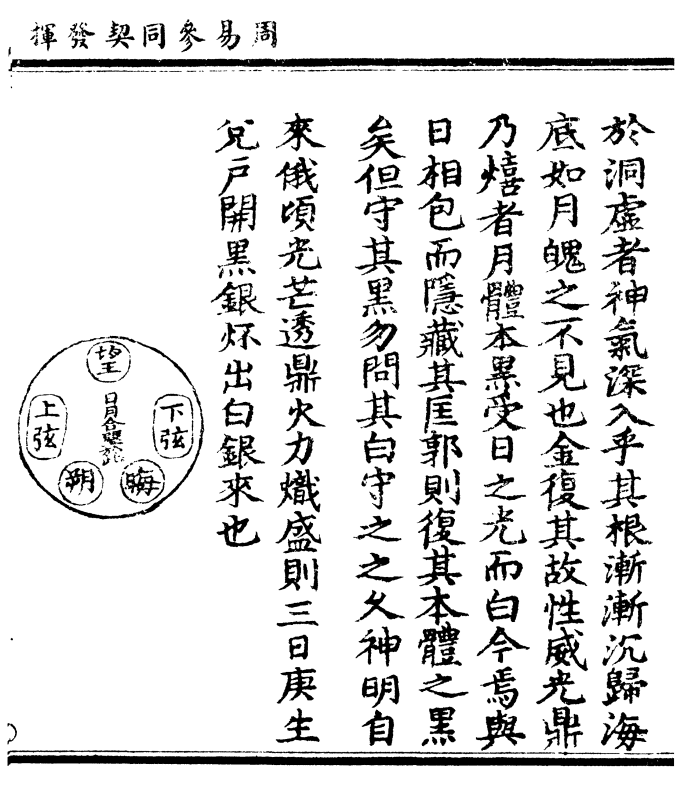 周易參同契發揮
於洞虛者神氣深入乎其根漸漸沉歸海
底如月魄之不見也金復其故性威光鼎
乃熺者月體本黑受日之光而白今焉與
日相包而隱藏其匡郭則復其本體之黑
矣但守其黑勿問其白守之之久神明自
來俄頃光芒透鼎火力熾盛則三日庚生
兌戶開黑銀炉出白銀來也
望
上弦
下弦
日月合璧
朔
晦